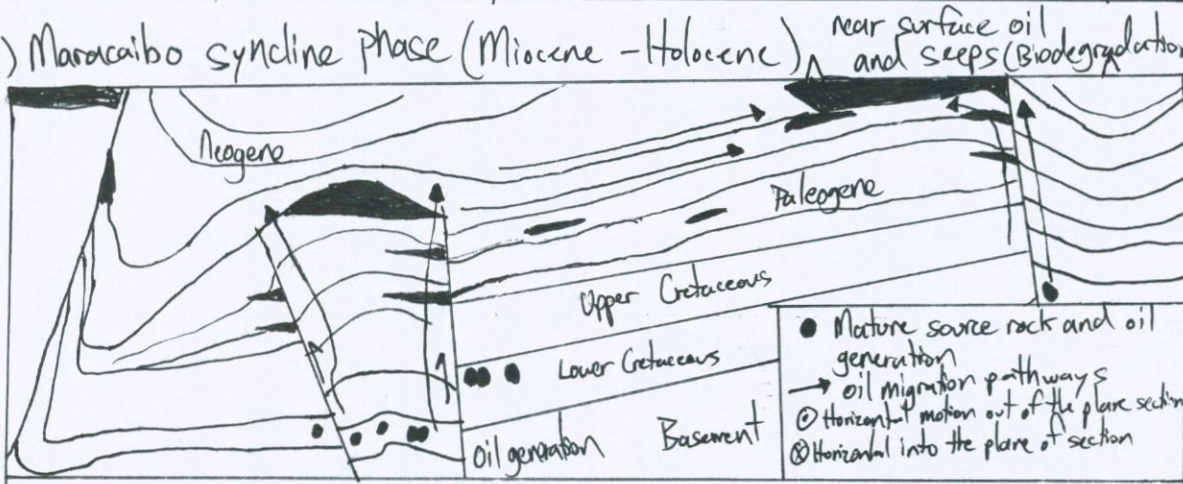 ) Maracaibo syncline phase (Miocene - Holocene)
near surface oil
and seeps (Biodegradation
Neogene
Paleogene
Upper Cretaceous
Lower Cretaceous
Oil generation
Basement
● Mature source rock and oil
generation
→ oil migration pathways
⊙ Horizontal motion out of the plane section
⊗ Horizontal into the plane of section